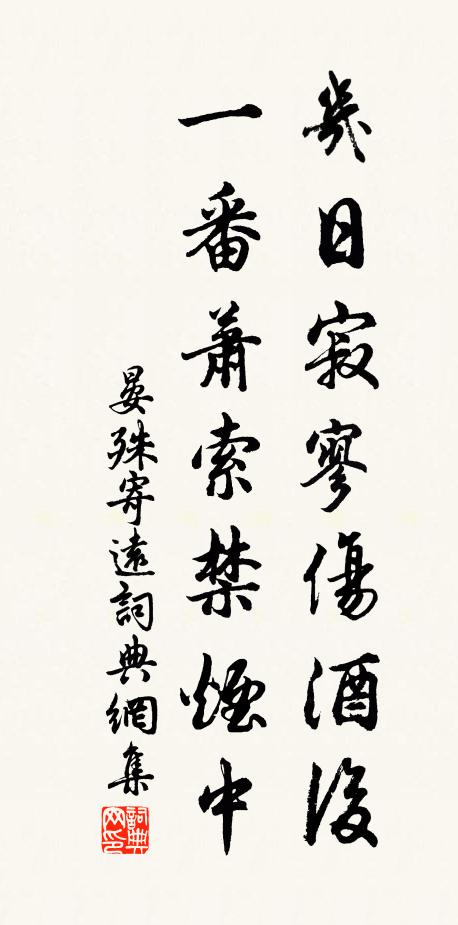 幾日寂寥傷酒後
一番蕭索禁煙中
晏殊寄遠詞典網集
詞典
网印